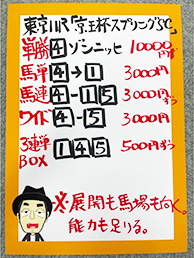 東京11R「京王杯スプリングC」
単勝 4 ゾンニッヒ 10000円
馬単 4→1 3000円
馬連 4-1 5 3000円ずつ
ワイド 4-5 3000円
3連単BOX 1 4 5 500円ずつ
※展開も馬場も向く。
能力も足りる。